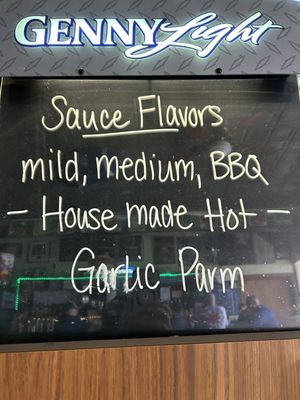 GENNY Light
Sauce Flavors
mild, medium, BBQ
- House made Hot -
Garlic Parm